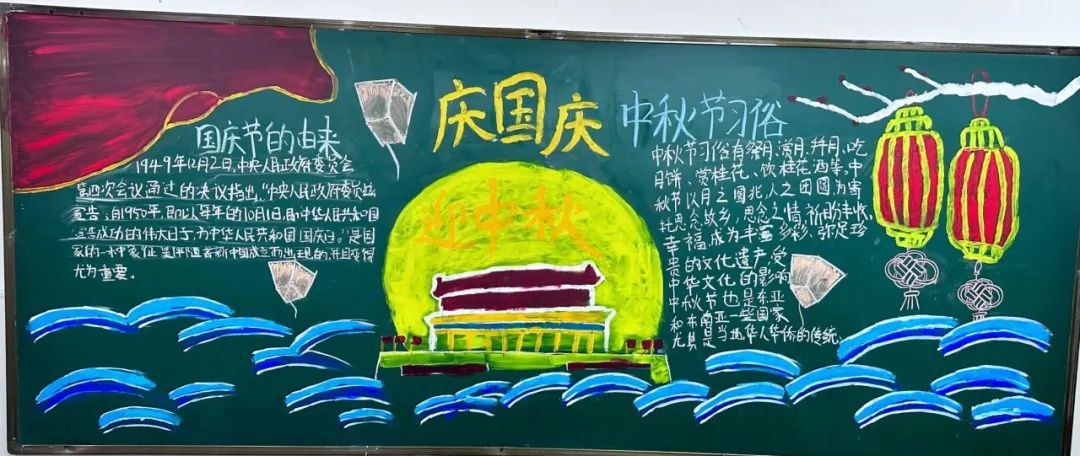 庆国庆
迎中秋
国庆节的由来
1949年12月2日,中央人民政府委员会
第四次会议通过的决议指出,"中央人民政府委员会
宣告:自1950年,即以每年的10月1日,即中华人民共和国
宣告成功的伟大日子,为中华人民共和国国庆日。"是国
家的一种象征,是伴随着新中国成立而出现的,并且变得
尤为重要。
中秋节习俗
中秋节习俗有祭月、赏月、拜月、吃
月饼、赏桂花、饮桂花酒等。中
秋节以月之圆兆人之团圆,为寄
托思念故乡,思念之情,祈盼丰收、
幸福,成为丰富多彩、弥足珍
贵的文化遗产,受
中华文化的影响
中秋节也是东亚
和东南亚一些国家
尤其是当地华人华侨的传统